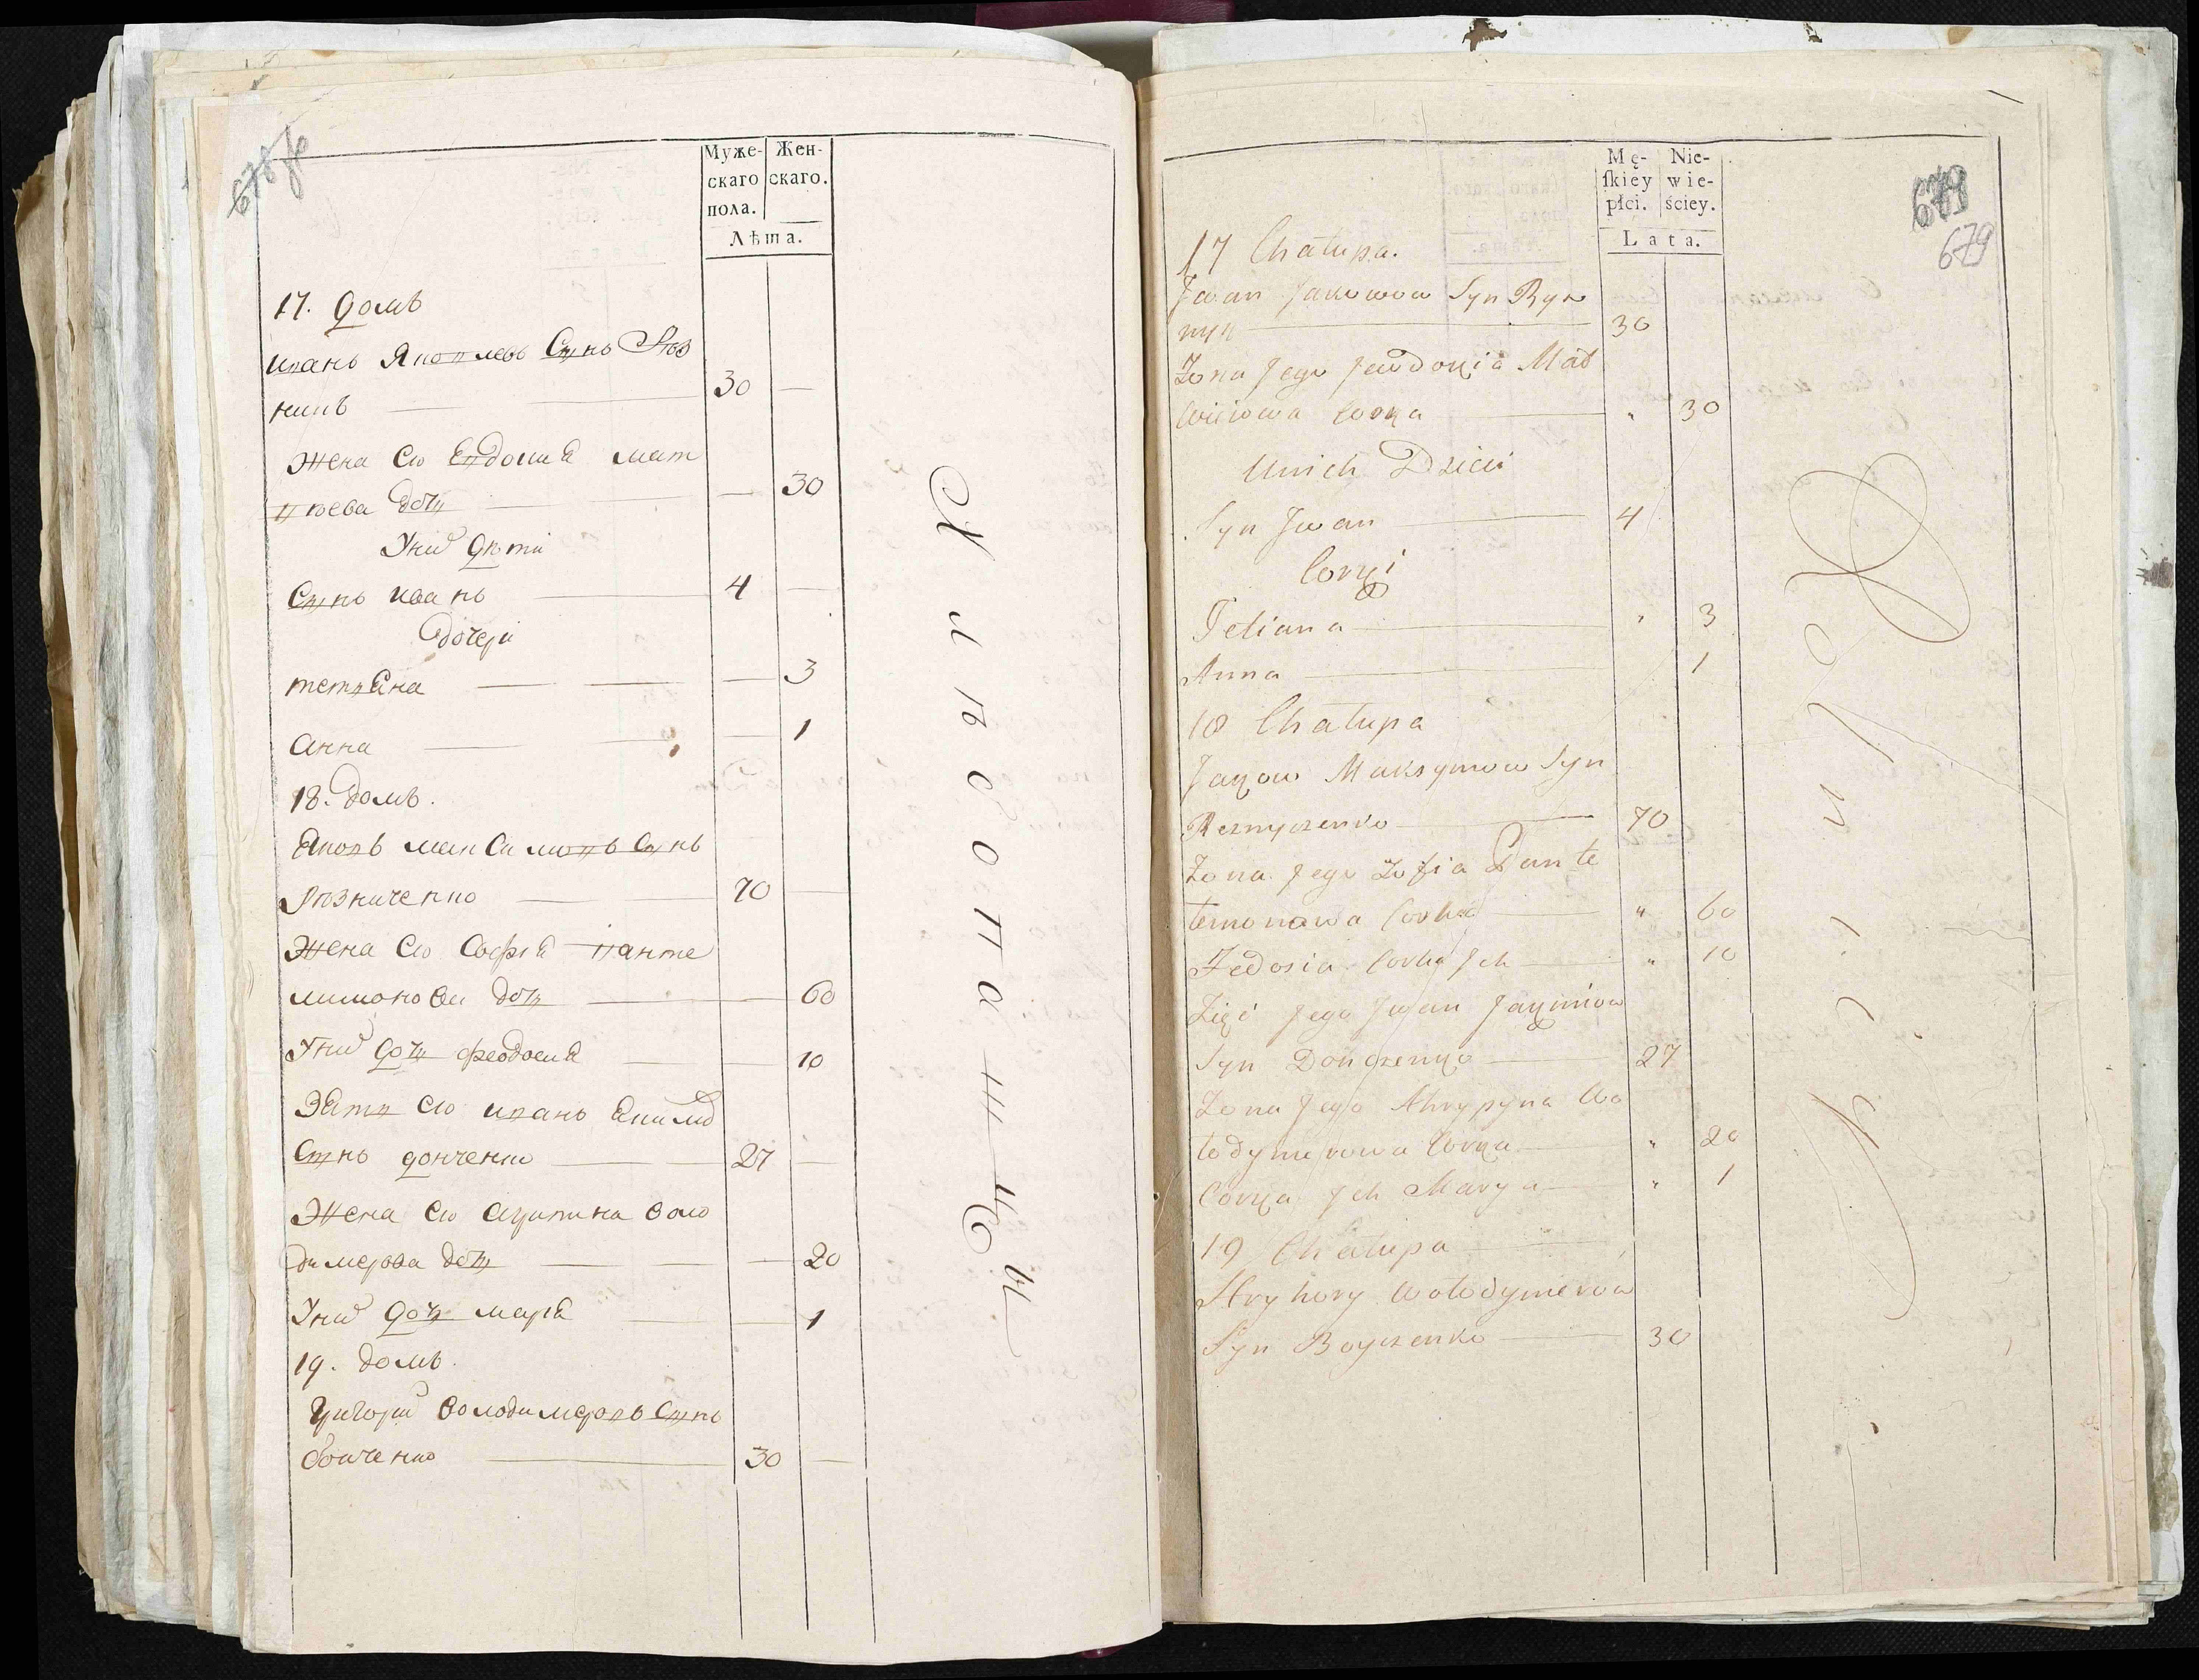 678 об
Муже- Жен-
скаго скаго.
пола.
Лѣта.
17. домъ
иванъ Яковлевъ Сынъ Рѣз
никъ — 30 —
Жена его Евдокия мат
вѣева дочь — — 30
У них дѣти
Сынъ иванъ — 4 —
дочери
тетяна — — 3
Анна — — 1
18. домъ.
Яковъ максимовъ Сынъ
Рѣзниченко — 70 —
Жена его Софія панте
лимонова дочь — — 60
У них дочь феодосия — — 10
Зять его иванъ якимов
Сынъ донченко — 27 —
Жена его агрипина воло
димерова дочь — — 20
У них дочь мария — — 1
19. домъ.
Григорий володимеровъ Сынъ
боиченко — 30 —
679
679
Mę- Nie-
ſkiéy wie-
płci. ściey.
Lata.
17 Chałupa.
Jwan Jakowow Syn Ryz
nyk — 30
Zona Jego Jewdokia Mat
wiiowa Corka — " 30
Unich Dzieci
Syn Jwan — 4
Corki
Tetiana — " 3
Anna — 1
18 Chałupa
Jakow Maksymow Syn
Reznyczenko — 70
Zona Jego Zofia Pante
lemonowa Corka — " 60
Fedosia Corka Jch — " 10
Zięć Jego Jwan Jakimow
Syn Donczenko — 27
Zona Jego Ahrypyna Wo
łodymerowa Corka — " 20
Corka Jch Marya — " 1
19 Chałupa
Hryhory Wołodymerow
Syn Boyczenko — 30